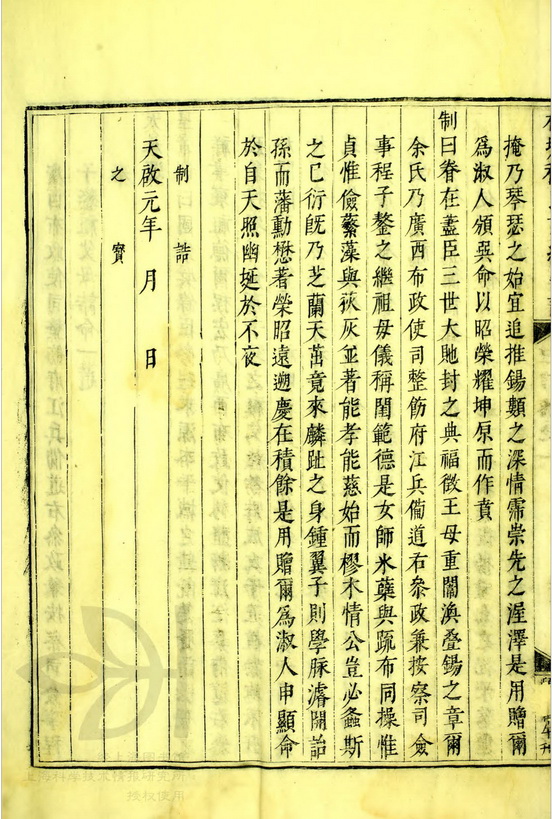 掩乃琴瑟之始宜追推錫類之深情霈崇先之渥澤是用贈爾
為淑人頒巽命以昭榮耀坤原而作賁
制曰眷在藎臣三世大貤封之典福徵王母重闈渙疊錫之章爾
余氏乃廣西布政使司整飭府江兵備道右叅政兼按察司僉
事程子鏊之繼祖母儀稱閨範德是女師氷蘖與疏布同操惟
貞惟儉蘩藻與荻灰並著能孝能慈始而樛木情公豈必螽斯
之已衍旣乃芝蘭天茁竟來麟趾之身鍾翼子則學脉濬開詒
孫而藩勳懋著榮昭遠遡慶在積餘是用贈爾為淑人申顯命
於自天照幽挻於不夜
制誥
天啟元年 月 日
之寳
上海科學技術情报研究所
授权使用